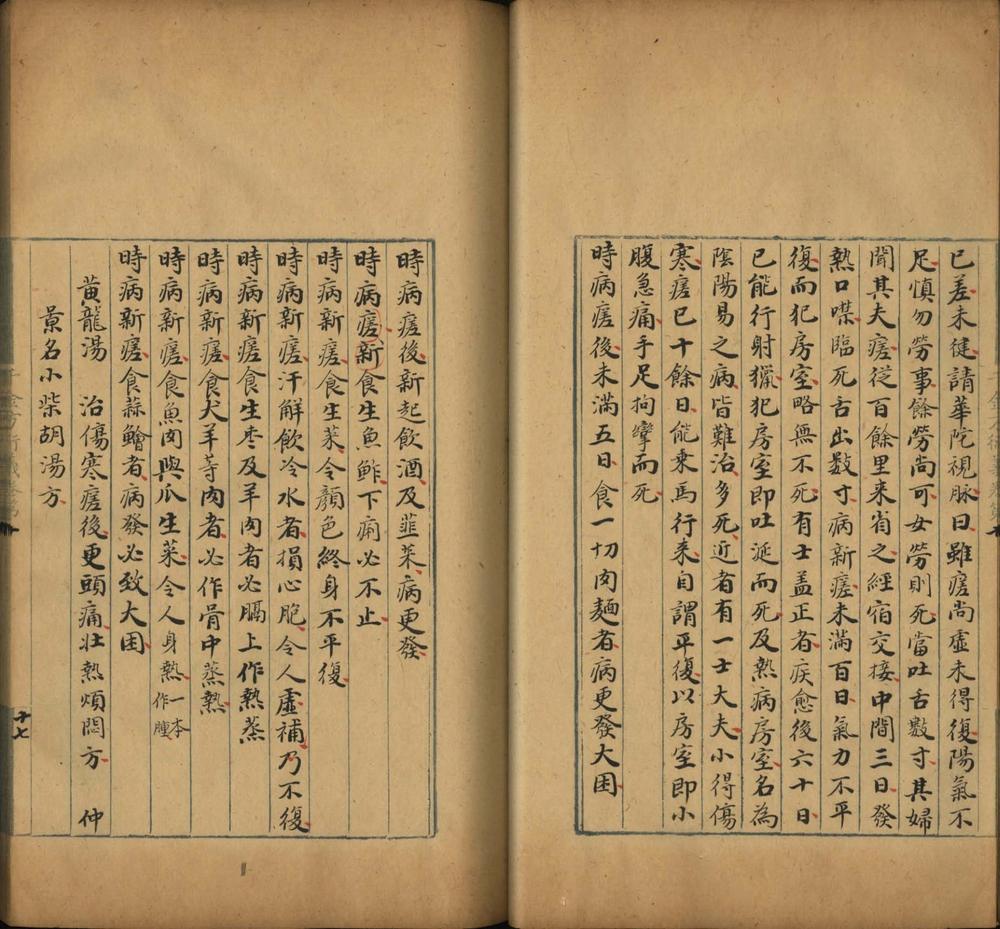 已差未健請華陀視脉曰雖瘥尚虛未得復陽氣不
足慎勿勞事餘勞尚可女勞則死當吐舌數寸其婦
聞其夫瘥從百餘里来省之經宿交接中間三日發
熱口噤臨死舌出數寸病新瘥未滿百日氣力不平
復而犯房室略無不死有士盖正者疾愈後六十日
已能行射獵犯房室即吐涎而死及熱病房室名為
陰陽易之病皆難治多死近者有一士大夫小得傷
寒瘥已十餘日能乘馬行来自謂平復以房室即小
腹急痛手足拘攣而死
時病瘥後未滿五日食一切肉麵者病更發大困
時病瘥後新起飲酒及韮菜病更發
時病瘥新食生魚鮓下痢必不止
時病新瘥食生菜令顏色終身不平復
時病新瘥汗解飲冷水者損心胞令人虛補乃不復
時病新瘥食生枣及羊肉者必膈上作熱蒸
時病新瘥食犬羊等肉者必作骨中蒸熱
時病新瘥食魚肉與瓜生菜令人身熱一本作腫
時病新瘥食蒜鱠者病發必致大困
黄龍湯 治傷寒瘥後更頭痛壮熱煩悶方 仲
景名小柴胡湯方
十七